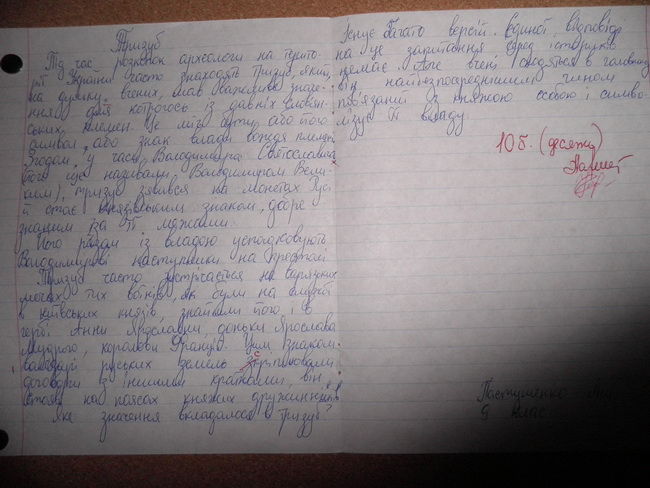 Тризуб
Під час розкопок археологи на терито-
рії України часто знаходять тризуб, який,
на думку вчених, мав важливе значе-
ння для котрогось із давніх слов'ян-
ських племен. Це міг бути або його
символ, або знак влади вождя племені.
Згодом, у часи Володимира Святославича
(його ще називали Володимиром Вели-
ким), тризуб з'явився на монетах Русі
й стає князівським знаком, добре
знаним за її межами.
Його разом із владою успадковують
Володимирові наступники на престолі.
Тризуб часто зустрічається на варязьких
мечах тих воїнів, як були на службі
в київських князів, знайшли його і в
гербі Анни Ярославни, доньки Ярослава
Мудрого, королеви Франції. Цим знаком
володарі руських земель скріплювали
договори з іншими країнами, він
стояв на поясах княжих дружинників.
Яке значення вкладалося в тризуб?
Існує багато версій. Єдиної відповіді
на це запитання серед істориків
немає. Але вчені сходяться в головному:
він найбезпосереднішим чином
пов'язаний із княжою особою і символізує її владу.
10 б. (десять)
Пастушенко
9 клас